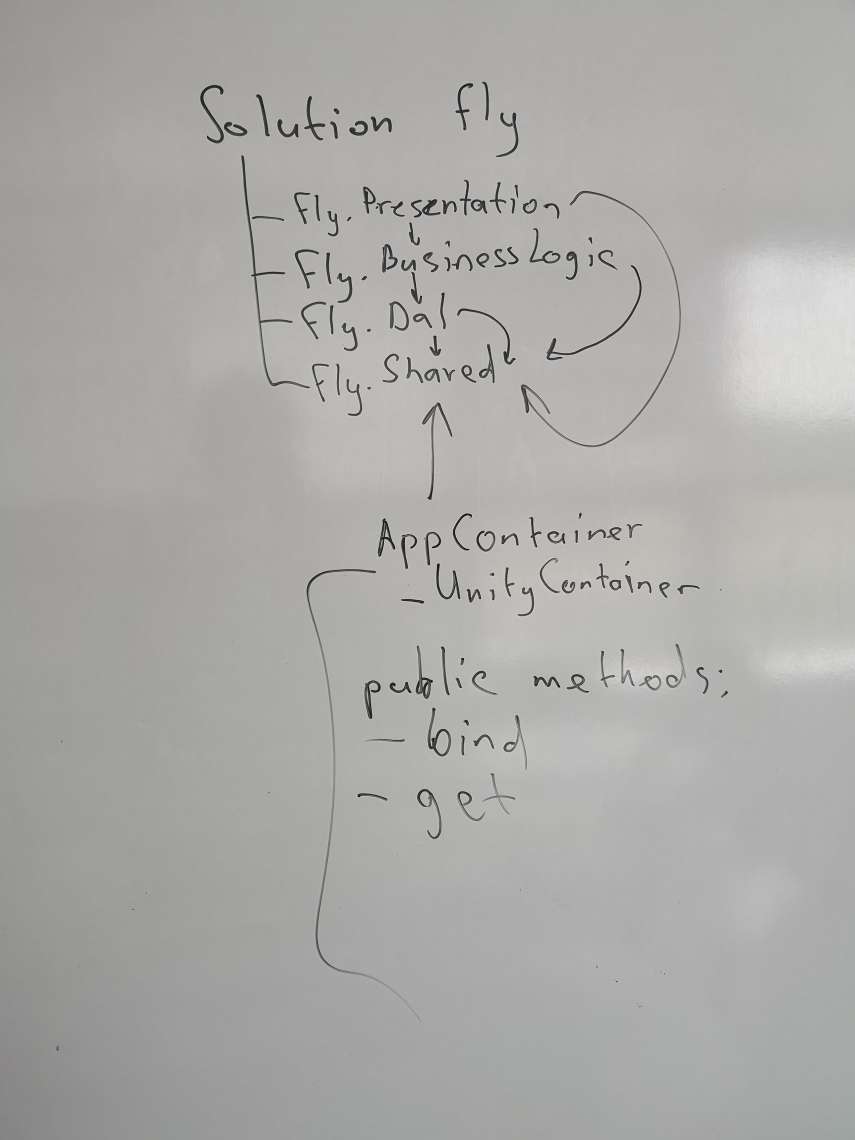 Solution fly
- Fly.Presentation
- Fly.BusinessLogic
- Fly.Dal
- Fly.Shared
AppContainer
- UnityContainer
public methods:
- bind
- get